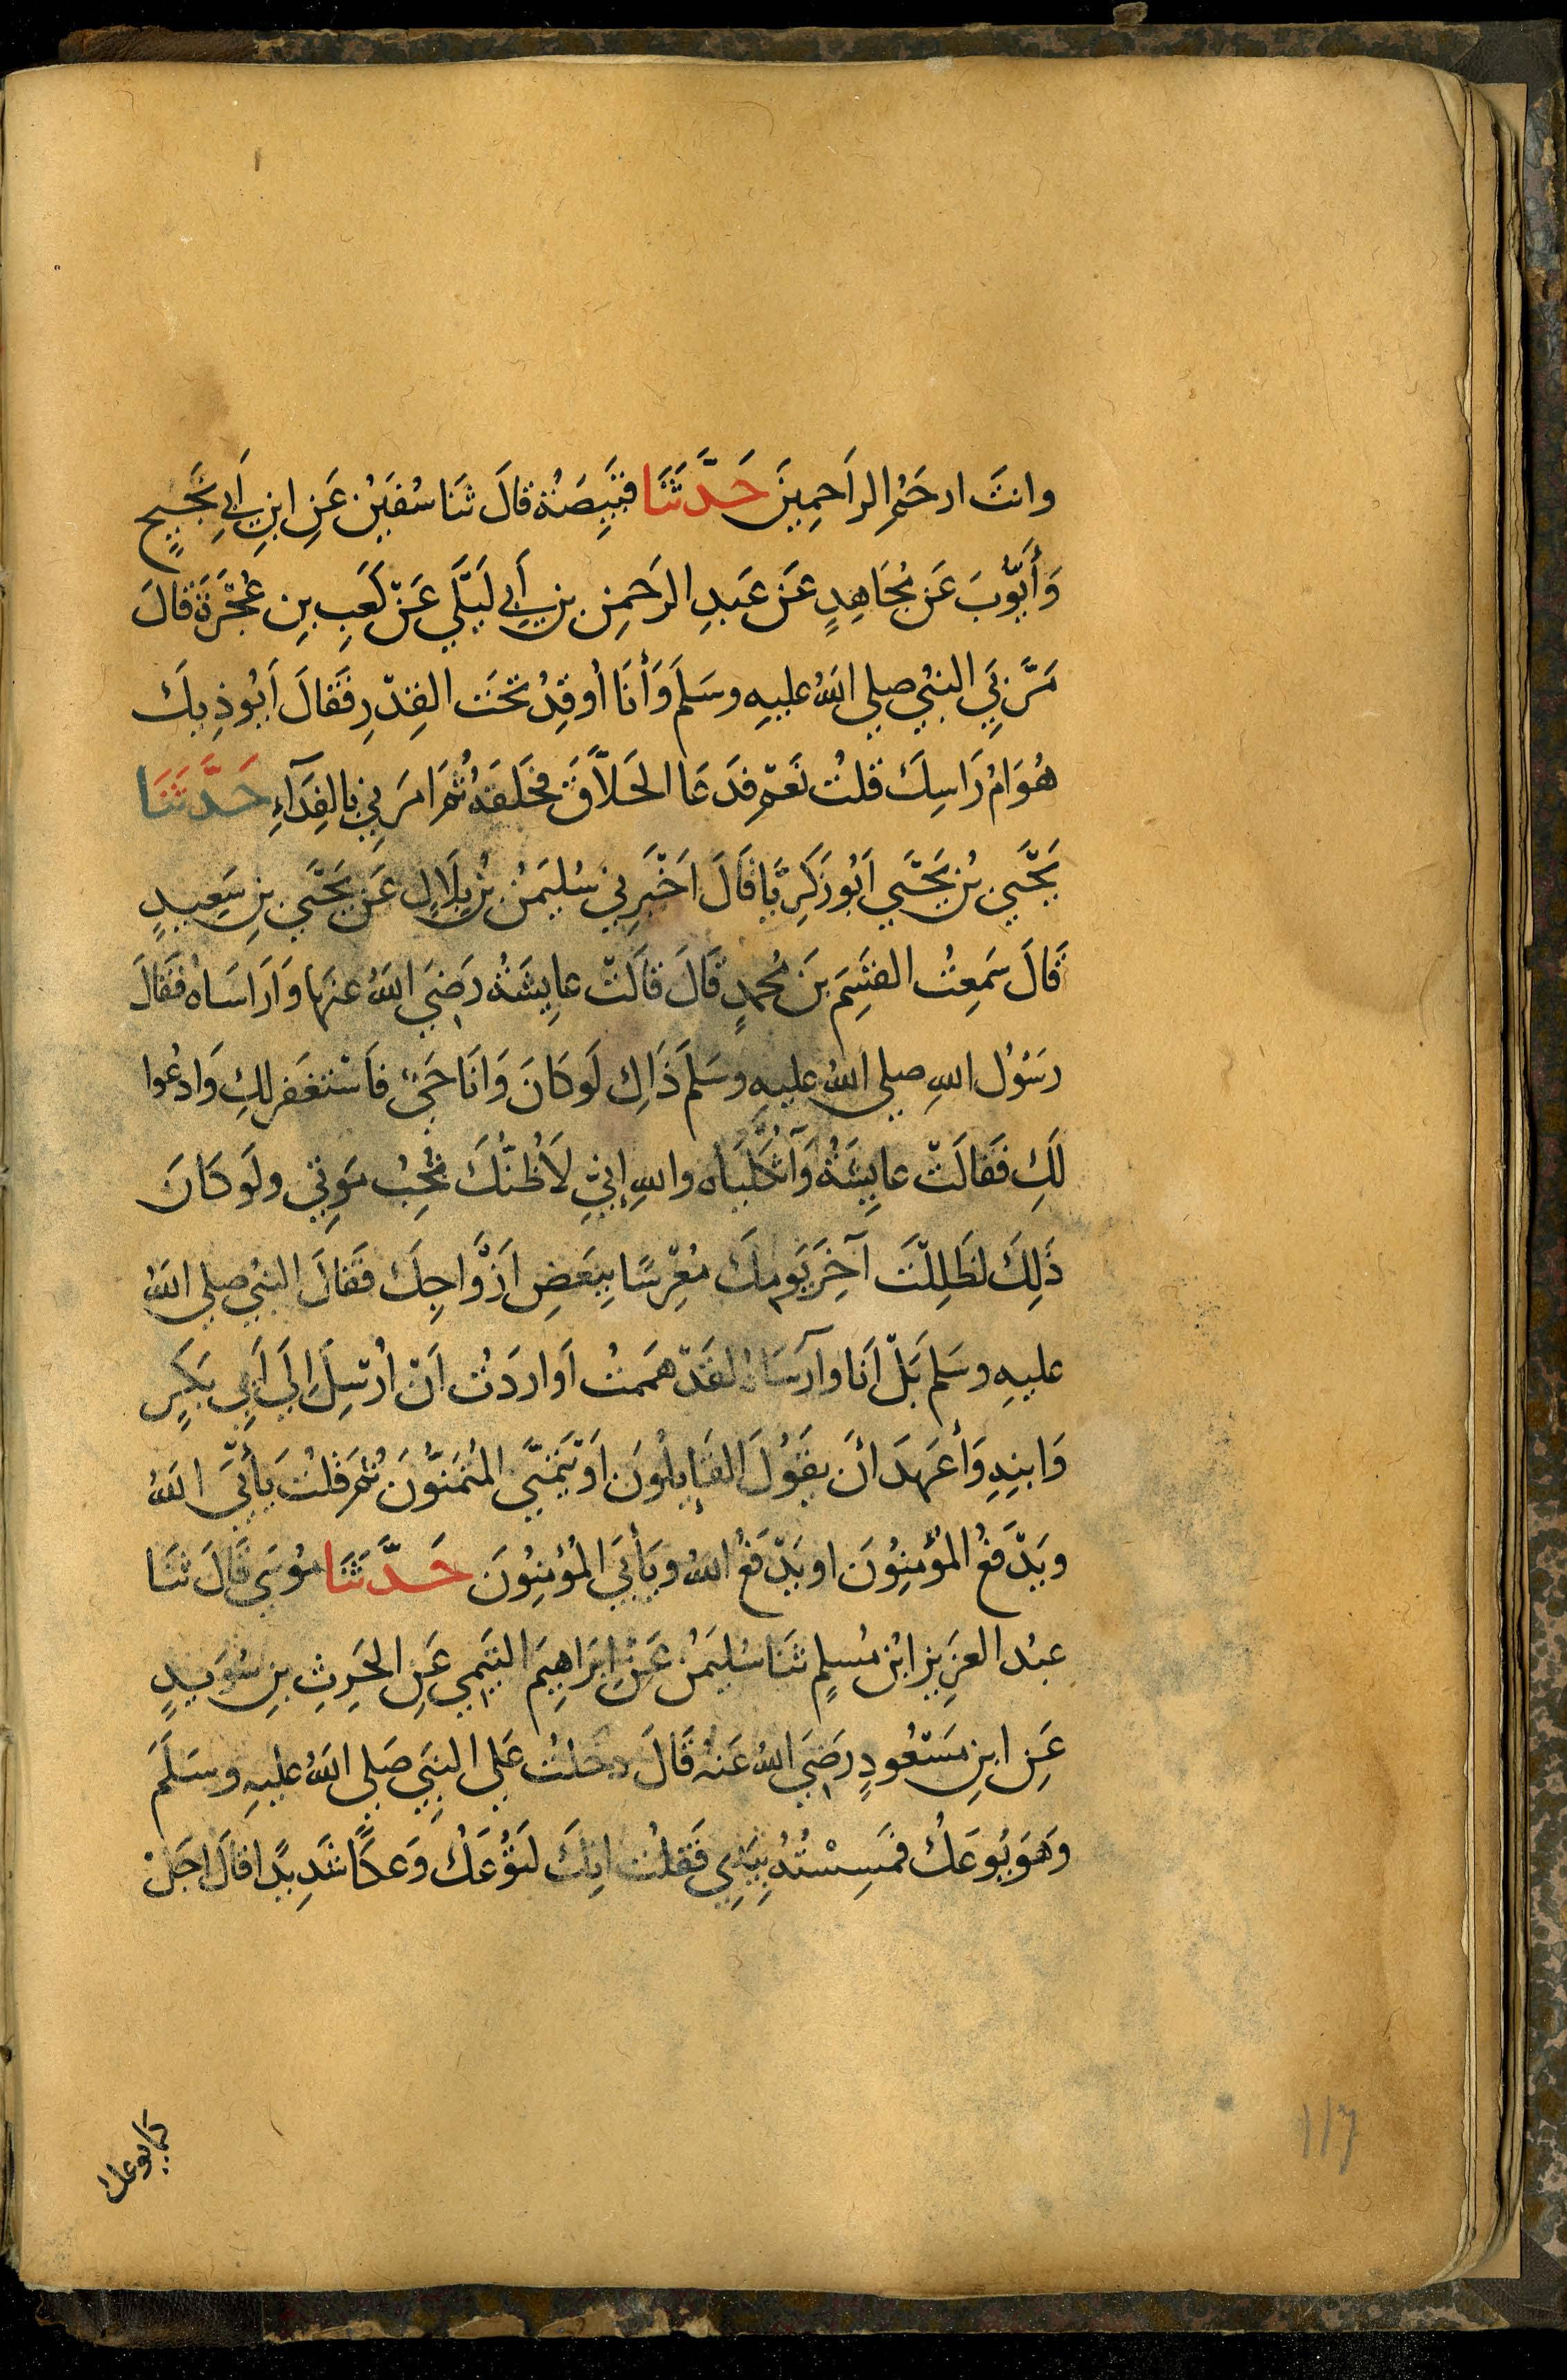 وانتَ ارحَمُ الراَحِمِينَ حَدَّثَنَا قَبِيصَةُ قالَ ثَنَا سُفيَنُ عَنِ ابنِ اَبِي نَجِيحٍ
وَأَيّوُبَ عَن مُجَاهِدٍ عَن عَبدِ الرَحمنِ بنِ اَبِي لَيَلَي عَنْ كَعبِ بنِ عُجْرَة قالَ
مَرَّ بيَ النبيُ صلي اللهُ عليهِ وسَلمَ وَأنَا أُوقِدُ تحتَ القِدْرِ فَقَالَ اَيُوذِيكَ
هُوَامُ رَاسِكَ قلتُ نَعَم فدَعَا الحَلاَّقَ فحَلَقَهُ ثُمَ امَرَني بالفِدَآءِ حَدَّثَنَا
يَحَّيي بنُ يَحَّيَي اَبُو زَكَرِيَّا قَالَ اَخْبَرِني سُليَمنُ بنُ بِلَالٍ عَن يَحَّيَي بنِ سَعِيدٍ
قَالَ سَمِعتُ القسَِمَ بنَ مُحمدٍ قَالَ قالَتْ عايِشَةُ رَضيَ اللهُ عنهَا وَارَاسَاهُ فقَالَ
رَسُولُ اللهِ صلي اللهُ عليهِ وسَلمَ ذَاكِ لَو كَانَ وَانَا حَيٌ فاَسْتغفَر لكِ وَادعُوا
لَكِ فَقَالَتْ عايِشَةُ وَآثُكْلَيَاه واللهِ إنيِّ لَأظُنُّكَ تحُِبُ مَوتِي ولَو كَانَ
ذَلِكَ لظَلِلْتَ آخِرَ يَومِكَ مُعِرّسًا بِبَعضِ اَزْوَاجِكَ فقَالَ النبيُ صلي اللهُ
عليهِ وسَلم بَلْ اَنا وآرَسَاهُ لقَدْ هَممتُ اَو اردَتُ اَنْ اُرْسِلَ اِلَي اَبِي بَكرٍ
وَابنِهِ وَأعهَدَ انَ يقَوُلَ القَايلُونَ اَو يَتَمَنَّي المُتَمَنُّونَ ثُمَ قلتُ يَأبَي اللهُ
ويَدْفَعُ المُؤمنِوُنَ او يَدْفَعُ اللهُ ويَأبَي المُؤمنِوُنَ حَدَّثَنَا مُوسَي قَالَ ثَنَا
عبدُ العزَيِز ابْن مُسلمٍ ثَنَا سُليَمنُ عَنْ اِبرَاهِيمَ التَيمِي عَنِ الحَرِثِ بنِ سُوَيدٍ
عَنِ ابنِ مَسْعُودٍ رَضيَ اللهُ عَنهُ قَالَ دخَلتُ عَلي النبَيِ صَلي اللهُ عليهِ وسَلَمَ
وهَو يُوعَكُ فمَسِسْتُهُ بِيَدِي فَقلتُ اِنكَ لَتُوعَكُ وَعكًا شَدِيدًا قالَ اجَلْ
كما يوعك
١١٦